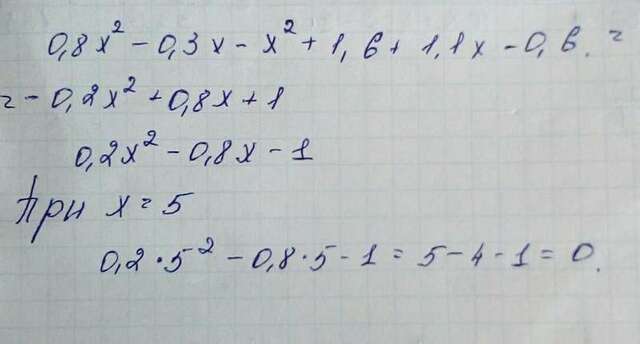 0,8x² - 0,3x - x² + 1,6 + 1,1x - 0,6. =
= - 0,2x² + 0,8x + 1
0,2x² - 0,8x - 1
При x = 5
0,2 · 5² - 0,8 · 5 - 1 = 5 - 4 - 1 = 0.